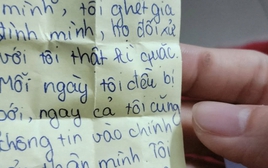 mình, tôi ghét gia
đình mình, họ đối xử
với tôi thật kì quặc.
Mỗi ngày tôi đều bị
ngay cả tôi cũng
tin vào chính
mình Tôi